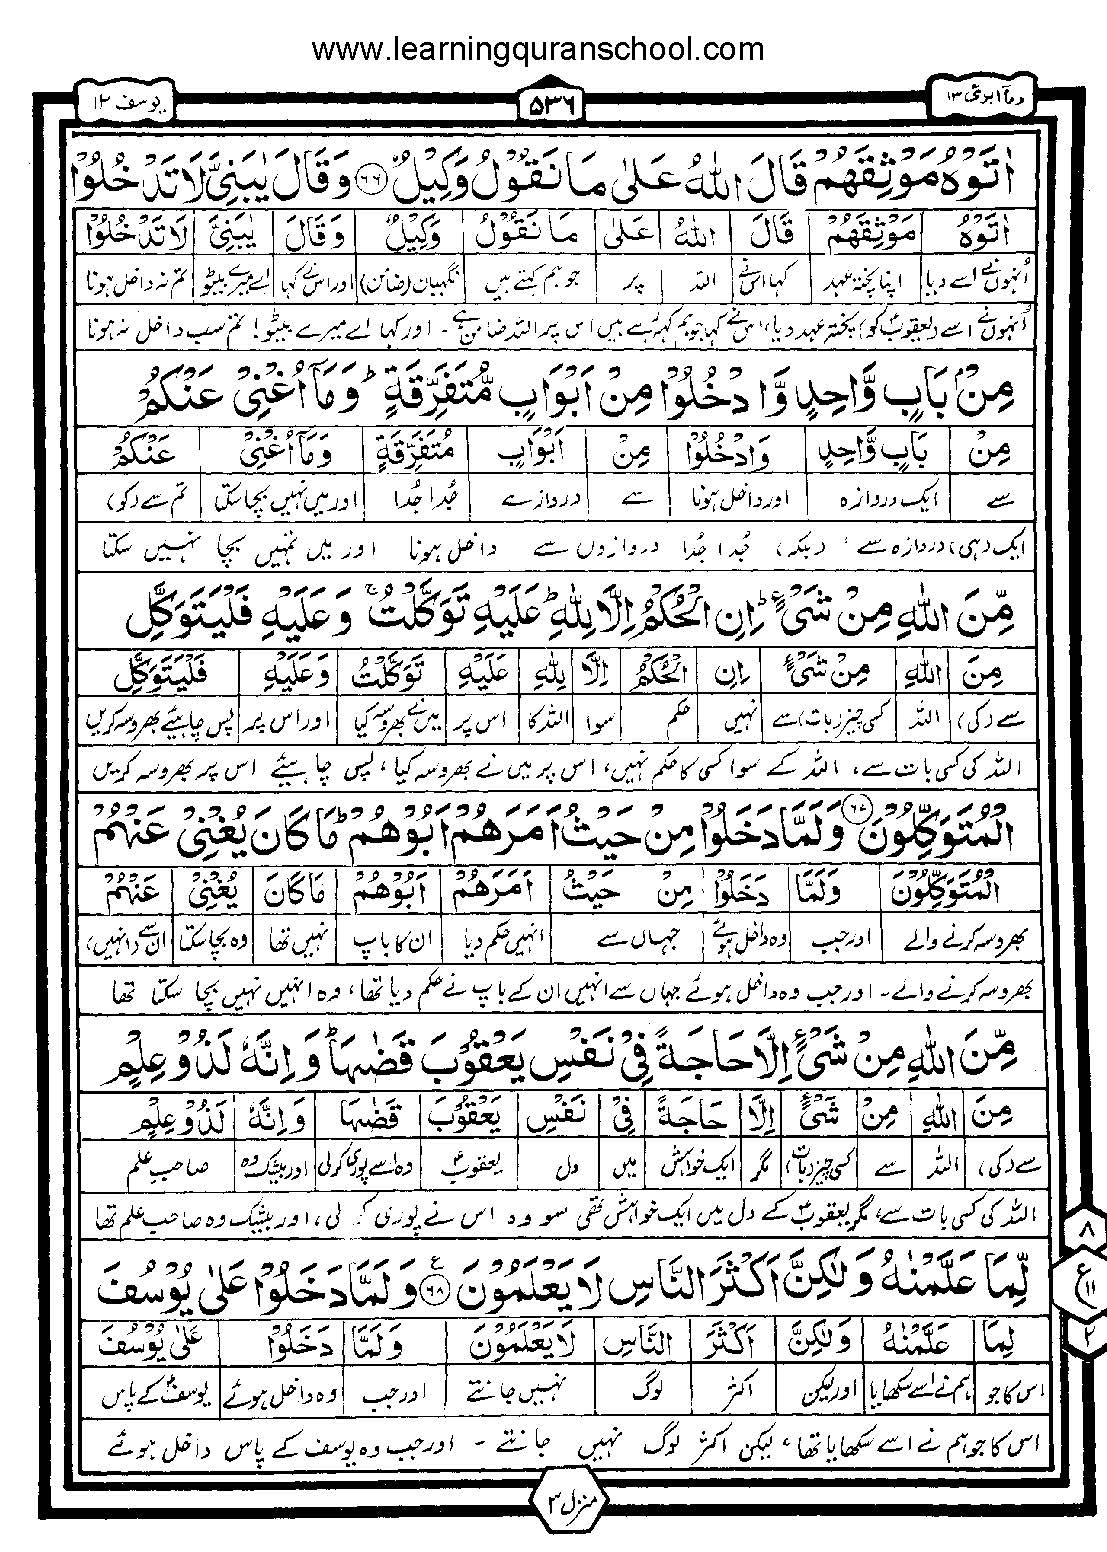 www.learningquranschool.com
وماۤ ابرئ ١٣
٥٣٦
يوسف ١٢
اٰتَوْهُ مَوْثِقَهُمْ قَالَ اللّٰهُ عَلٰى مَا نَقُوْلُ وَكِيْلٌ ٦٦ وَقَالَ يٰبَنِيَّ لَا تَدْخُلُوْا
اٰتَوْهُ مَوْثِقَهُمْ قَالَ اللّٰهُ عَلٰى مَا نَقُوْلُ وَكِيْلٌ وَقَالَ يٰبَنِيَّ لَا تَدْخُلُوْا
اُنہوں نے اسے دیا اپنا پختہ عہد کہا اس نے اللہ پر جو ہم کہتے ہیں نگہبان (ضامن) اور اس نے کہا اے میرے بیٹو تم نہ داخل ہونا
اُنہوں نے اسے (یعقوبؑ کو) پختہ عہد دیا، اس نے کہا جو ہم کہہ رہے ہیں اس پر اللہ ضامن ہے۔ اور کہا اے میرے بیٹو! تم سب داخل نہ ہونا
مِنْۢ بَابٍ وَّاحِدٍ وَّادْخُلُوْا مِنْ اَبْوَابٍ مُّتَفَرِّقَةٍ ؕ وَمَاۤ اُغْنِيْ عَنْكُمْ
مِنْ بَابٍ وَّاحِدٍ وَادْخُلُوْا مِنْ اَبْوَابٍ مُتَفَرِّقَةٍ وَمَاۤ اُغْنِيْ عَنْكُمْ
سے ایک دروازہ اور داخل ہونا سے دروازے جُدا جُدا اور میں نہیں بچا سکتا تم سے (کو)
ایک (ہی) دروازہ سے، (بلکہ) جُدا جُدا دروازوں سے داخل ہونا اور میں تمہیں بچا نہیں سکتا
مِّنَ اللّٰهِ مِنْ شَيْءٍ ؕ اِنِ الْحُكْمُ اِلَّا لِلّٰهِ ؕ عَلَيْهِ تَوَكَّلْتُ ۚ وَعَلَيْهِ فَلْيَتَوَكَّلِ
مِنَ اللّٰهِ مِنْ شَيْءٍ اِنِ الْحُكْمُ اِلَّا لِلّٰهِ عَلَيْهِ تَوَكَّلْتُ وَعَلَيْهِ فَلْيَتَوَكَّلِ
سے (کی) اللہ کسی چیز (بات) سے نہیں حکم سوا اللہ کا اس پر میں نے بھروسہ کیا اور اس پر پس چاہیئے بھروسہ کریں
اللہ کی کسی بات سے، اللہ کے سوا کسی کا حکم نہیں، اس پر میں نے بھروسہ کیا، پس چاہیئے اس پر بھروسہ کریں
الْمُتَوَكِّلُوْنَ ٦٧ وَلَمَّا دَخَلُوْا مِنْ حَيْثُ اَمَرَهُمْ اَبُوْهُمْ ؕ مَا كَانَ يُغْنِيْ عَنْهُمْ
الْمُتَوَكِّلُوْنَ وَلَمَّا دَخَلُوْا مِنْ حَيْثُ اَمَرَهُمْ اَبُوْهُمْ مَا كَانَ يُغْنِيْ عَنْهُمْ
بھروسہ کرنے والے اور جب وہ داخل ہوئے جہاں سے انہیں حکم دیا ان کا باپ نہیں تھا وہ بچا سکتا ان سے (انہیں)
بھروسہ کرنے والے۔ اور جب وہ داخل ہوئے جہاں سے انہیں ان کے باپ نے حکم دیا تھا، وہ انہیں نہیں بچا سکتا تھا
مِّنَ اللّٰهِ مِنْ شَيْءٍ اِلَّا حَاجَةً فِيْ نَفْسِ يَعْقُوْبَ قَضٰىهَا ؕ وَاِنَّهٗ لَذُوْ عِلْمٍ
مِنَ اللّٰهِ مِنْ شَيْءٍ اِلَّا حَاجَةً فِيْ نَفْسِ يَعْقُوْبَ قَضٰىهَا وَاِنَّهٗ لَذُوْ عِلْمٍ
سے (کی) اللہ سے کسی چیز (بات) مگر ایک خواہش میں دل یعقوبؑ وہ اسے پوری کر لی اور بیشک وہ صاحبِ علم
اللہ کی کسی بات سے، مگر یعقوبؑ کے دل میں ایک خواہش تھی سو وہ اس نے پوری کر لی، اور بیشک وہ صاحبِ علم تھا
لِّمَا عَلَّمْنٰهُ وَلٰكِنَّ اَكْثَرَ النَّاسِ لَا يَعْلَمُوْنَ ٦٨ ع وَلَمَّا دَخَلُوْا عَلٰى يُوْسُفَ
لِمَا عَلَّمْنٰهُ وَلٰكِنَّ اَكْثَرَ النَّاسِ لَا يَعْلَمُوْنَ وَلَمَّا دَخَلُوْا عَلٰى يُوْسُفَ
اس کا جو ہم نے اسے سکھایا اور لیکن اکثر لوگ نہیں جانتے اور جب وہ داخل ہوئے یوسفؑ کے پاس
اس کا جو ہم نے اسے سکھایا تھا، لیکن اکثر لوگ نہیں جانتے۔ اور جب وہ یوسف کے پاس داخل ہوئے
٨
ع ١١
٢
منزل ٣